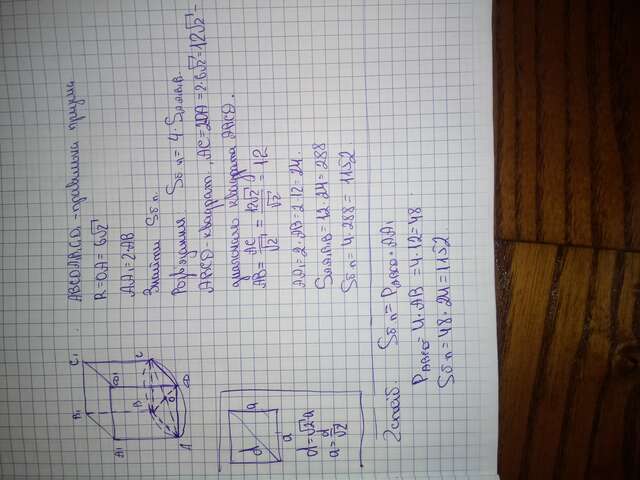 ABCDA₁B₁C₁D₁ - правильна призма
R = OA = 6√2
AA₁ = 2·AB
Знайти Sб.п.
Розв'язання Sб.п = 4·S AA₁B₁B.
ABCD - квадрат, AC = 2OA = 2·6√2 = 12√2 -
діагональ квадрата ABCD.
AB = AC/√2 = 12√2/√2 = 12
AA₁ = 2·AB = 2·12 = 24.
S AA₁B₁B = 12·24 = 288
Sб.п = 4·288 = 1152
B₁ C₁
A₁ D₁
B C
O
A D
d a
a
d = √2·a
a = d/√2
2 спосіб. Sб.п = P ABCD · AA₁
P ABCD = 4·AB = 4·12 = 48
Sб.п = 48·24 = 1152.